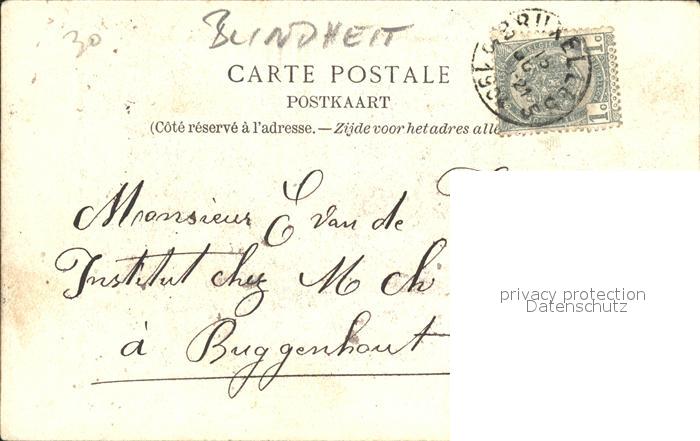 30
BLINDHEIT
CARTE POSTALE
POSTKAART
(Côté réservé à l'adresse.—Zijde voor het adres alle
BRUXELLES
BELGIE
1c 1c
Monsieur E van de
Institut chez M Ch
à Buggenhout
privacy protection
Datenschutz